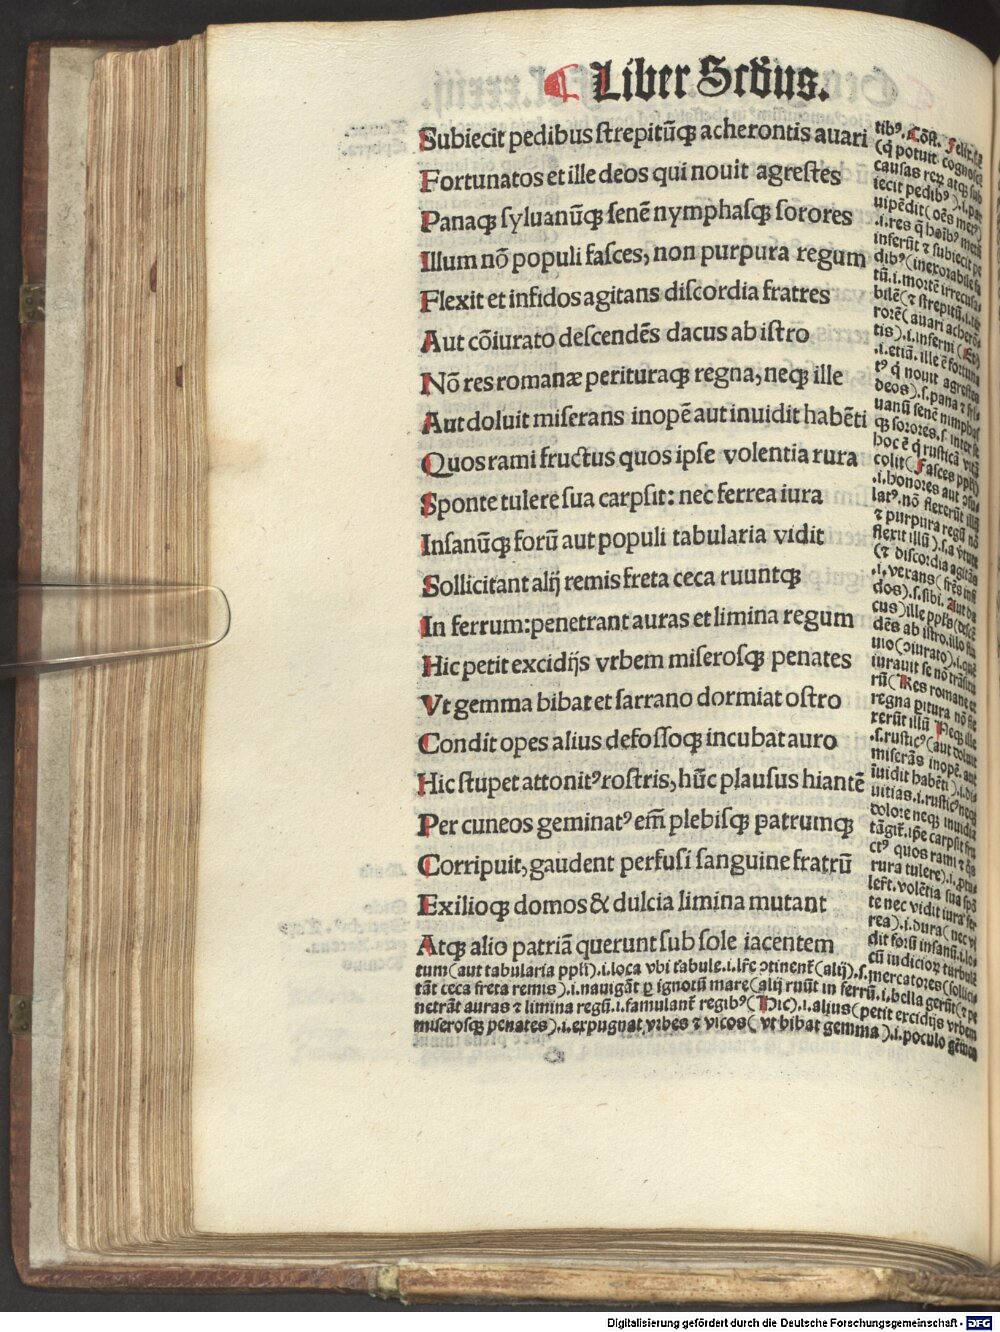 Liber Scd̄us.
Subiecit pedibus strepitūq; acherontis auari
Fortunatos et ille deos qui nouit agrestes
Panaq; syluanūq; senē nymphasq; sorores
Illum nō populi fasces, non purpura regum
Flexit et infidos agitans discordia fratres
Aut cōiurato descendēs dacus ab istro
Nō res romanæ perituraq; regna, neq; ille
Aut doluit miserans inopē aut inuidit habēti
Quos rami fructus quos ipse volentia rura
Sponte tulere sua carpsit: nec ferrea iura
Insanūq; forū aut populi tabularia vidit
Sollicitant alij remis freta ceca ruuntq;
In ferrum: penetrant auras et limina regum
Hic petit excidijs vrbem miserosq; penates
Vt gemma bibat et sarrano dormiat ostro
Condit opes alius defossoq; incubat auro
Hic stupet attonitꝰ rostris, hūc plausus hiantē
Per cuneos geminatꝰ em̄ plebisq; patrumq;
Corripuit, gaudent perfusi sanguine fratrū
Exilioq; domos & dulcia limina mutant
Atq; alio patriā querunt sub sole iacentem
tibꝰ.
(q̄ potuit
causas reꝝ atq; sub
iecit pedibꝰ).i.
uipēdit(oēs
.i.res q̄
inferūt ⁊ subiecit
dibꝰ(inexorabile
tū.i.mortē
bilē(⁊ strepitū.i.
rorē(auari
tis).i.inferni(Et)
.i.etiā.ille ē
tꝰ q̄ nouit agrestes
deos).s.pana ⁊
uanū senē
q; sorores.s.
hoc ē q̄ rusticā vitā
colit(Fasces ppl̄i)
.i.honores aut
latꝰ.nō flexerūt illū
⁊ purpura regū nō
flexit illū).s.a
(⁊ discordia agitās
.i.vexans(
dos).s.sibi.Aut da
cus)ille
dēs ab istro.
uio(ɔiurato).i.
iurauit se nō
rū(Res romane et
regna pitura nō
xerūt illū Neq; ille
.s.rusticꝰ(aut doluit
miserās inopē.aut
īuidit habēti).i.
uitias.i.rusticꝰ neq;
dolore neq; inuidia
tāgit̄.ip̄e carpsit
ctꝰ quos rami ⁊
rura tulere).i.
lert.volētia sua spō
te nec vidit iura
rea).i.dura(nec
dit forū insanū.i.
cū iudicioꝝ
tum(aut tabularia ppl̄i).i.loca vbi tabule.i.lr̄e ɔtinent̄(alij).s.mercatores(sollici
tāt ceca freta remis).i.nauigāt ꝑ ignotū mare(alij ruūt in ferrū.i.bella gerūt(⁊ pe
netrāt auras ⁊ limina regū.i.famulant̄ regibꝰ(Hic).i.alius(petit excidijs vrbem
miserosq; penates).i.expugnat vrbes ⁊ vicos(vt bibat gemma).i.poculo
Digitalisierung gefördert durch die Deutsche Forschungsgemeinschaft - DFG